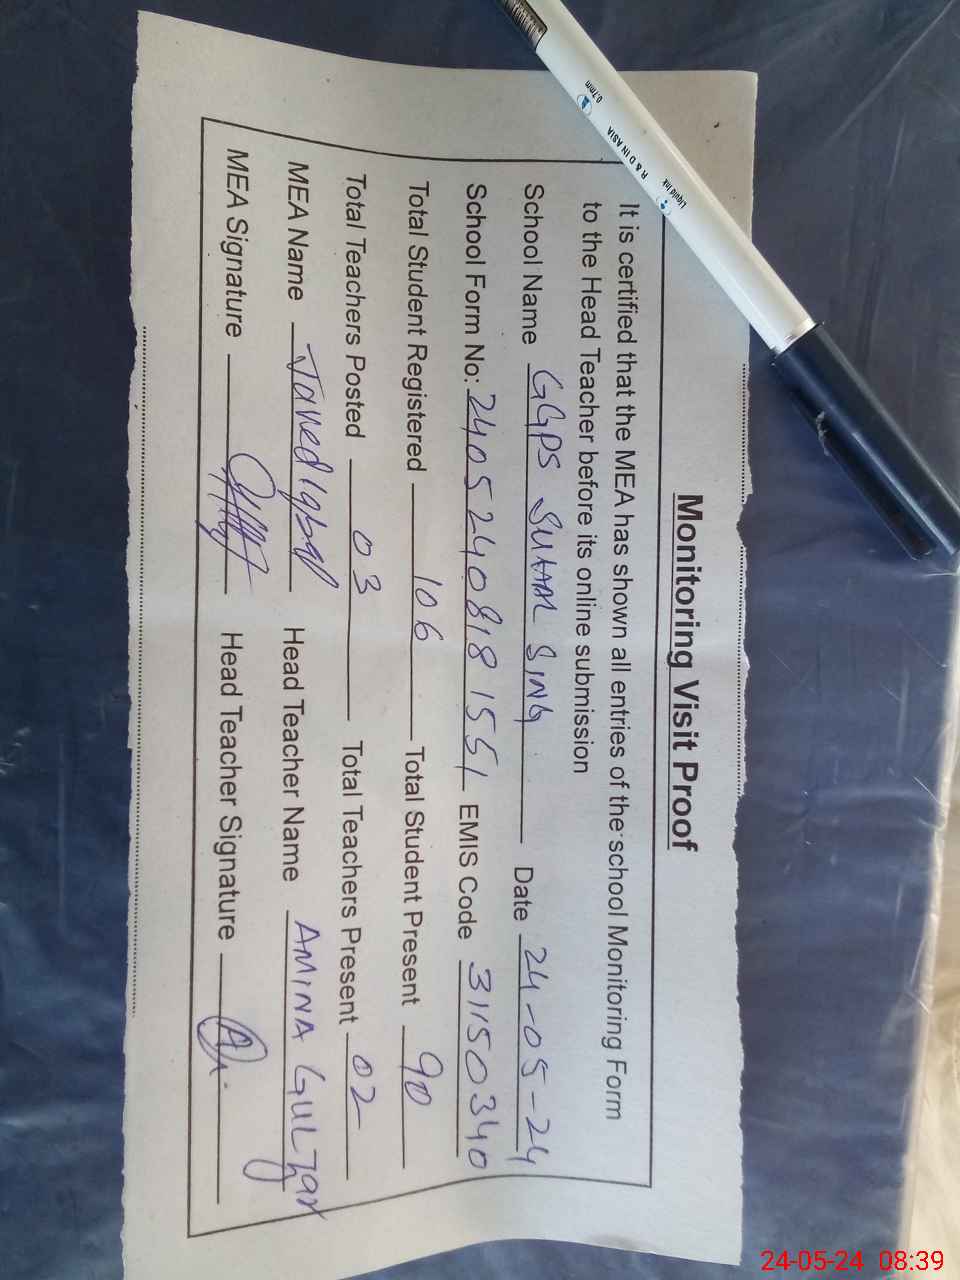 Monitoring Visit Proof
It is certified that the MEA has shown all entries of the school Monitoring Form
to the Head Teacher before its online submission
School Name GGPS SUHAL SING Date 24-05-24
School Form No: 24052408181551 EMIS Code 31150340
Total Student Registered 106 Total Student Present 90
Total Teachers Posted 03 Total Teachers Present 02
MEA Name Javed Iqbal Head Teacher Name AMINA GULZAR
MEA Signature Head Teacher Signature
0.7mm
R & D IN ASIA
Liquid Ink
24-05-24 08:39